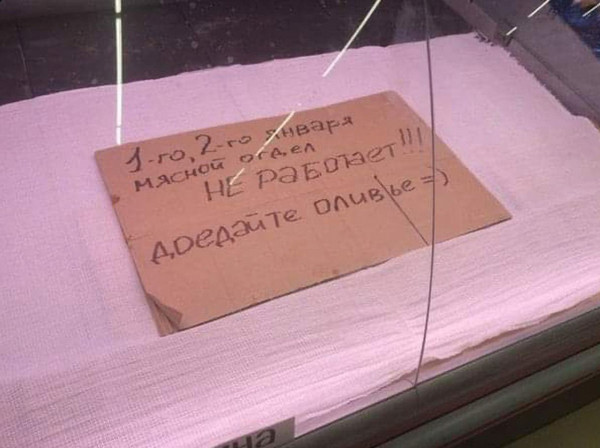 1-го, 2-го января
мясной отдел
НЕ РАБОТАЕТ!!!
доедайте оливье =)
на